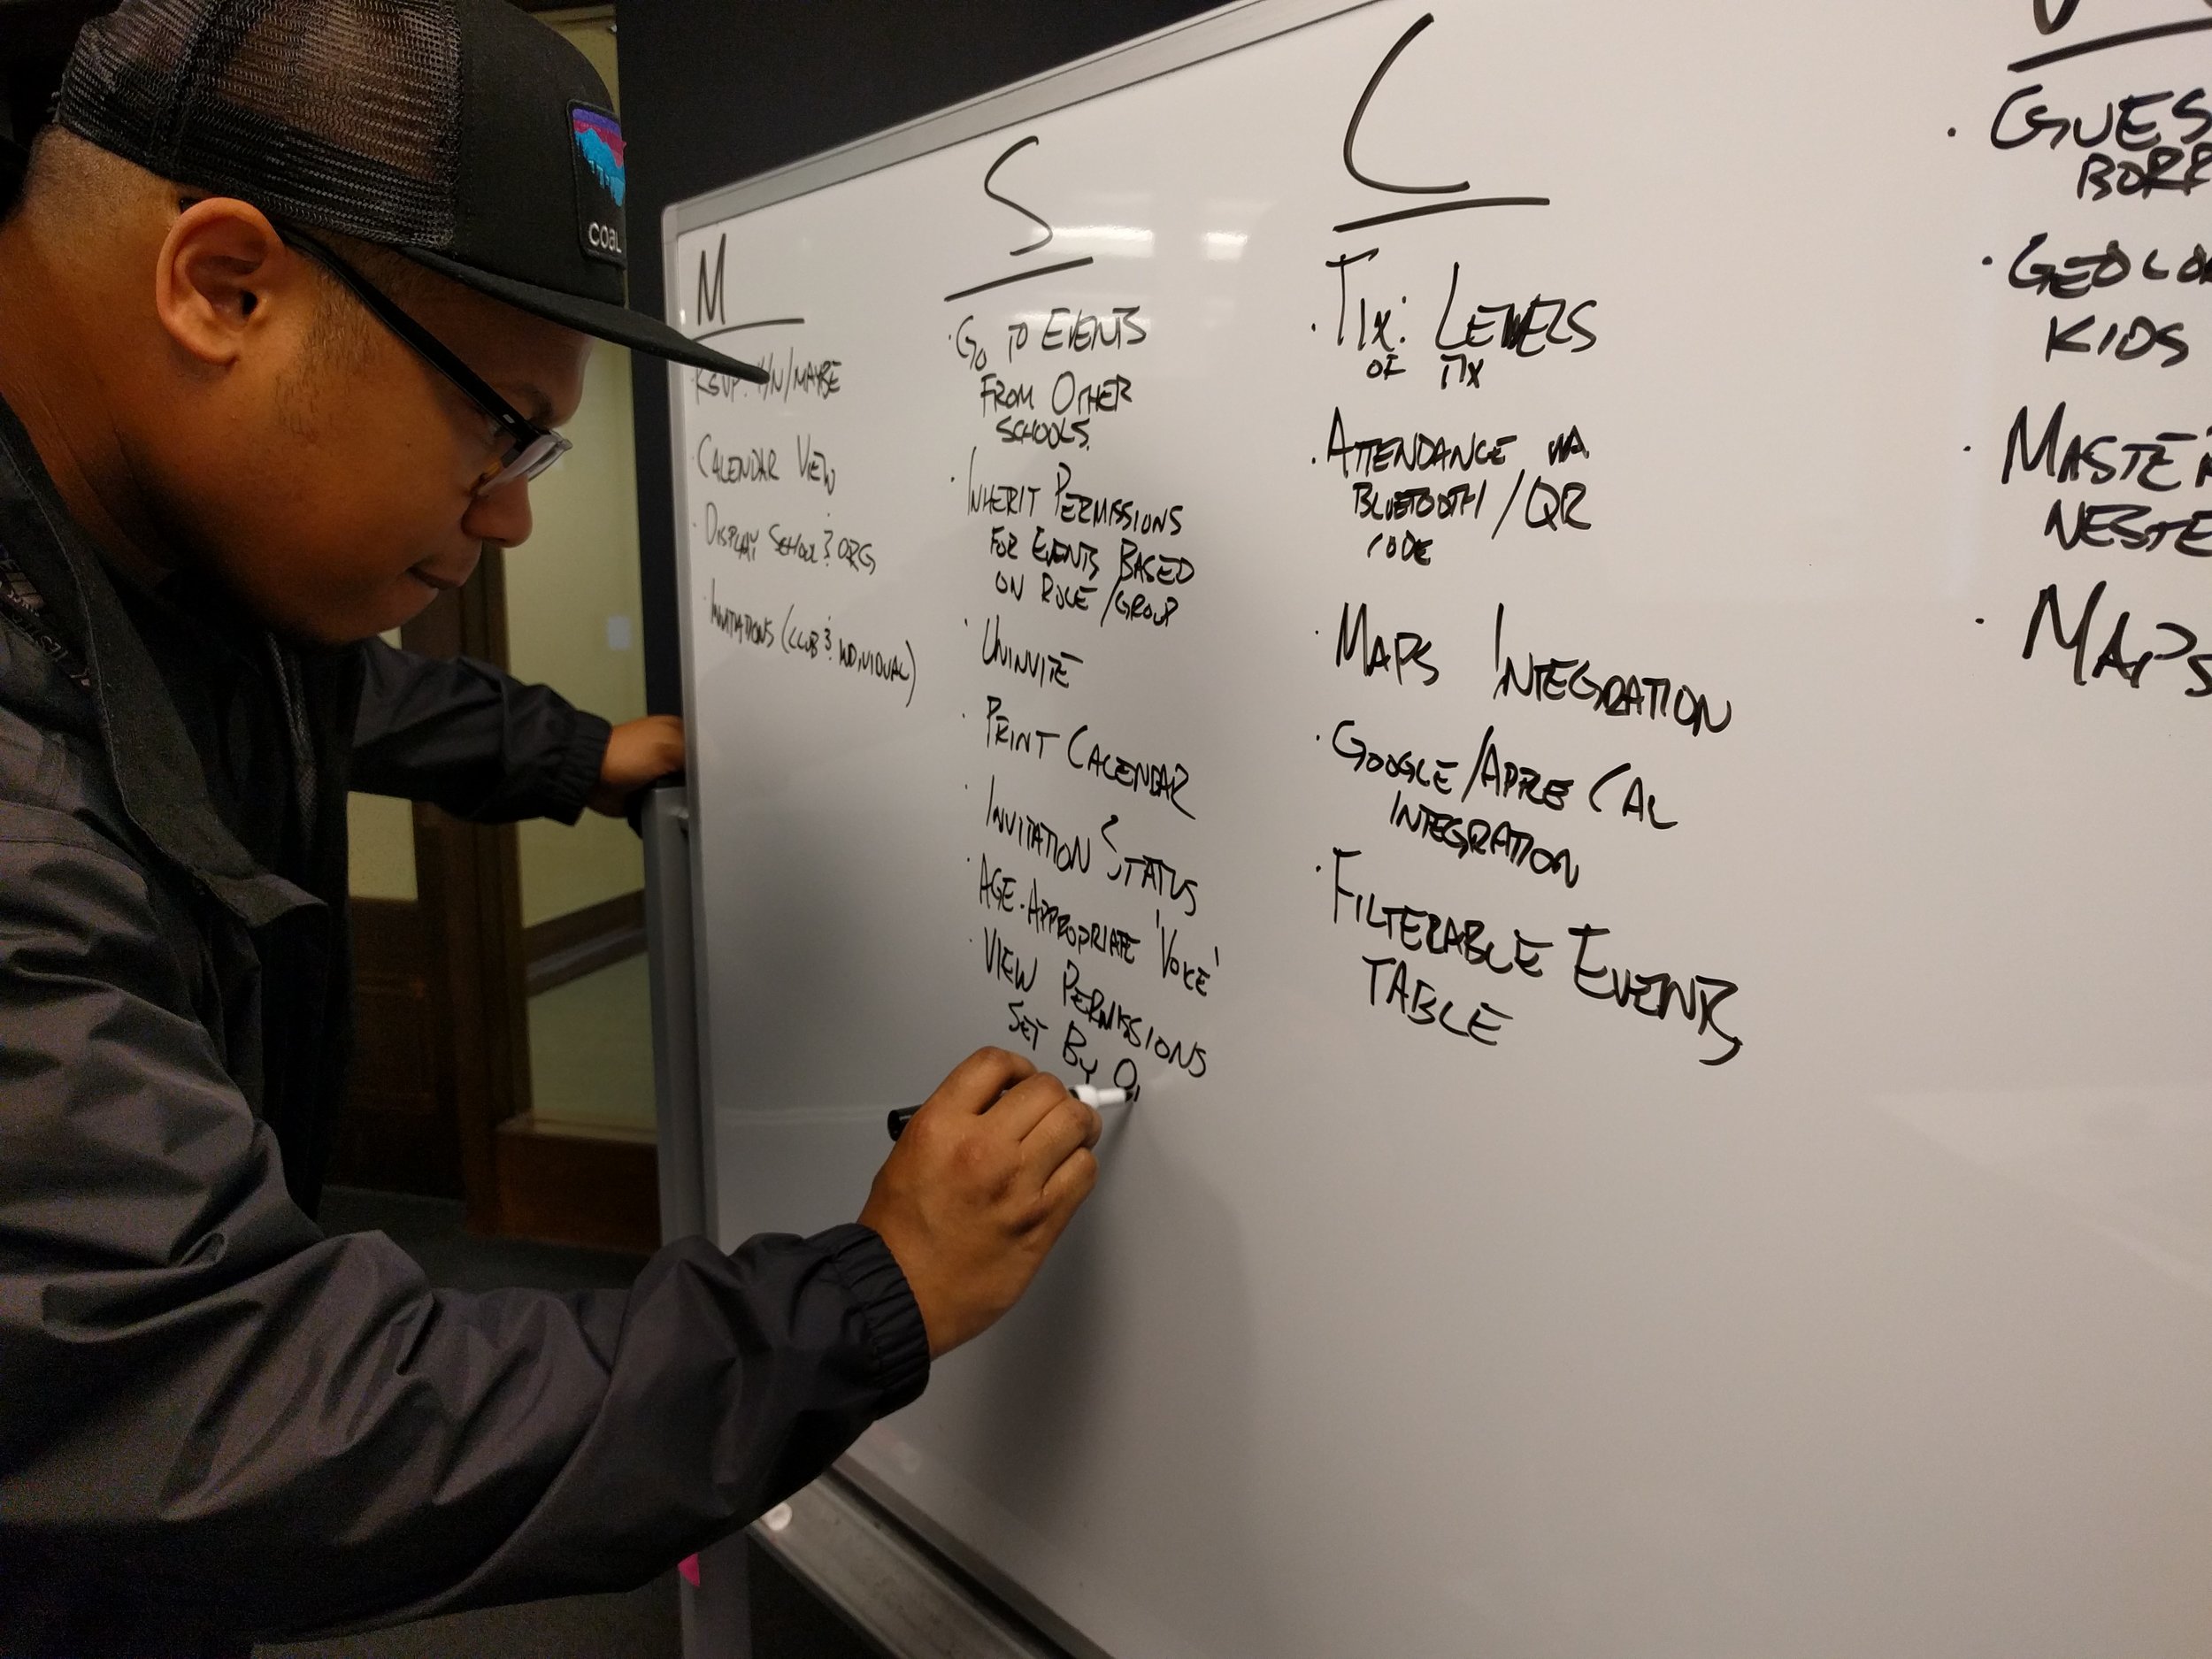 coal
M
RSVP: Y/N/MAYBE
· CALENDAR VIEW
· DISPLAY SCHOOL & ORG
· INVITATIONS (CLUB & INDIVIDUAL)
S
· GO TO EVENTS
FROM OTHER
SCHOOLS
· INHERIT PERMISSIONS
FOR EVENTS BASED
ON ROLE/GROUP
· UNINVITE
· PRINT CALENDAR
· INVITATION STATUS
· AGE-APPROPRIATE 'VOICE'
· VIEW PERMISSIONS
SET BY
C
· TIX: LEVELS
OF TIX
· ATTENDANCE VIA
BLUETOOTH/QR
CODE
· MAPS INTEGRATION
· GOOGLE/APPLE CAL
INTEGRATION
· FILTERABLE EVENTS
TABLE
KIDS
· MAPS